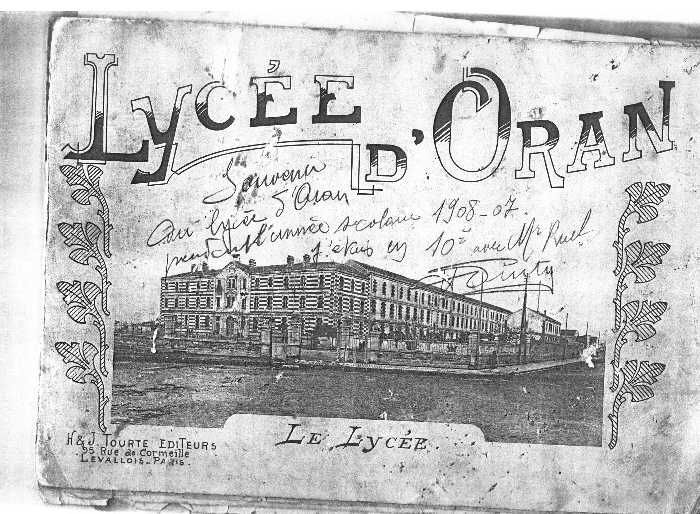 LYCÉE D'ORAN
Souvenir
du lycée d'Oran
pendant l'année scolaire 1908-07.
j'étais en 10e avec Mr Ruel
LE LYCÉE
H & J. TOURTE EDITEURS
55 Rue de Cormeille
LEVALLOIS-PARIS.